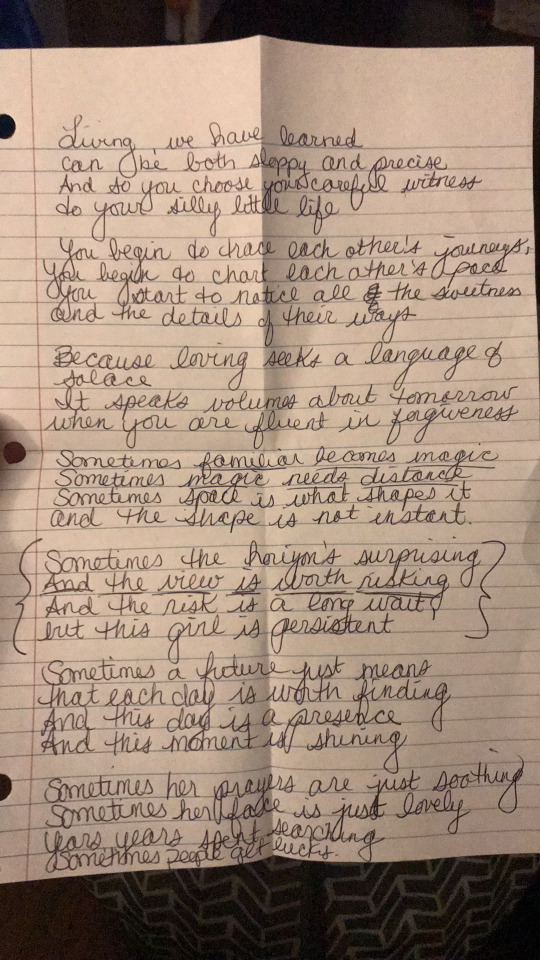 Living, we have learned
can be both sloppy and precise
And so you choose your careful witness
to your silly little life
You begin to trace each other's journeys,
You begin to chart each other's pace
You start to notice all the sweetness
and the details of their ways
Because loving seeks a language of
solace
It speaks volumes about tomorrow
when you are fluent in forgiveness
Sometimes familiar becomes magic
Sometimes magic needs distance
Sometimes space is what shapes it
and the shape is not instant.
Sometimes the horizon's surprising
And the view is worth risking
And the risk is a long wait,
but this girl is persistent
Sometimes a future just means
that each day is worth finding
And this day is a presence
And this moment is shining
Sometimes her prayers are just soothing
Sometimes her face is just lovely
Years years spent searching
Sometimes people get lucky.